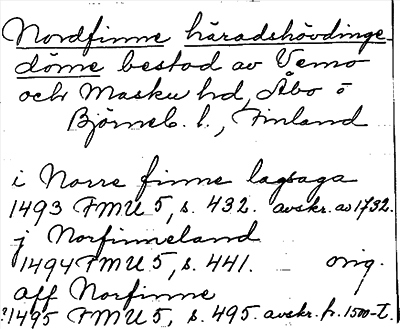 Nordfinne häradshövdinge
döme bestod av Vemo
och Masku hd, Åbo o
Björneb. l., Finland
i Norre finne lagsaga
1493 FMU 5, s. 432. avskr. av 1732.
j Norfinneland
1494 FMU 5, s. 441. orig.
aff Norfinne
?1495 FMU 5, s. 495. avskr. fr. 1500-t.